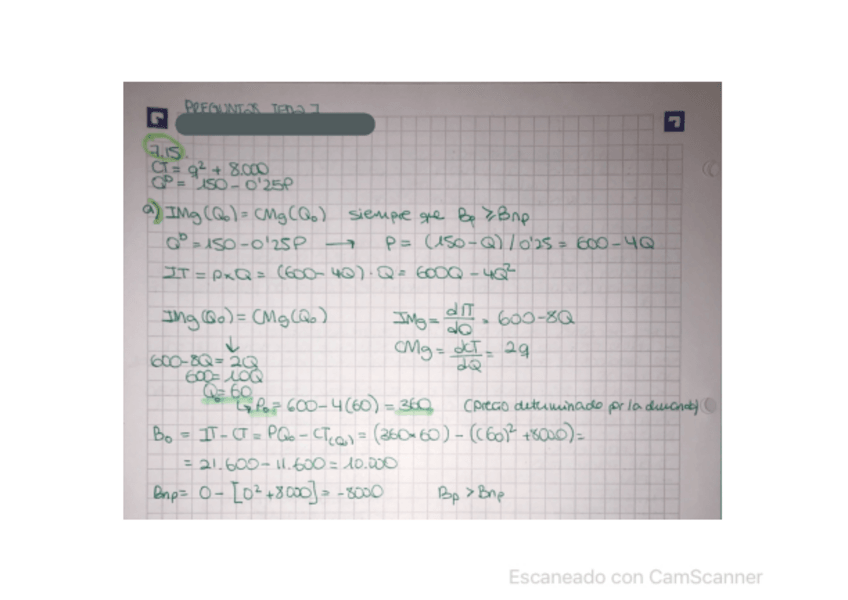 PREGUNTAS TEMA 7
7.15.
CT = q² + 8.000
Qᴰ = 150 - 0'25P
a) IMg(Q₀) = CMg(Q₀) siempre que Bp ≥ Bnp
Qᴰ = 150 - 0'25P → P = (150-Q)/0'25 = 600 - 4Q
IT = P×Q = (600 - 4Q)·Q = 600Q - 4Q²
IMg(Q₀) = CMg(Q₀) IMg = dIT/dQ = 600 - 8Q
↓ CMg = dCT/dQ = 2q
600 - 8Q = 2Q
600 = 10Q
Q₀ = 60
↳ P₀ = 600 - 4(60) = 360 (precio determinado por la demanda)
B₀ = IT - CT = PQ₀ - CT(Q₀) = (360×60) - ((60)² + 8000) =
= 21.600 - 11.600 = 10.000
Bnp = 0 - [0² + 8000] = -8000 Bp > Bnp
Escaneado con CamScanner